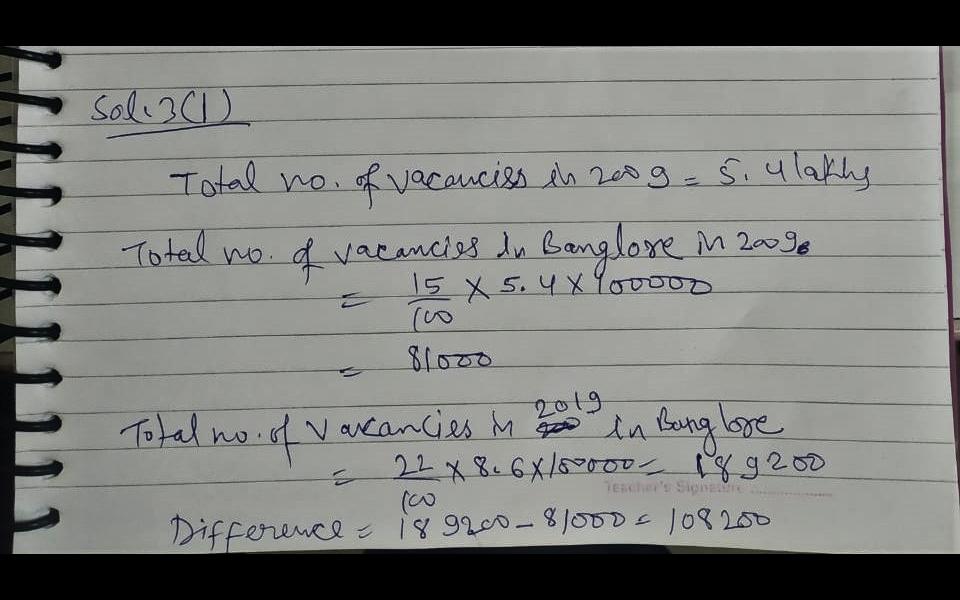 Sol:3(1)
Total no. of vacancies in 2009 = 5.4 lakhs
Total no. of vacancies in Banglore in 2009.
= 15/100 × 5.4 × 100000
= 81000
Total no. of vacancies in 2019 in Banglore
= 22/100 × 8.6 × 100000 = 189200
Teacher's Signature ..................
Difference = 189200 - 81000 = 108200